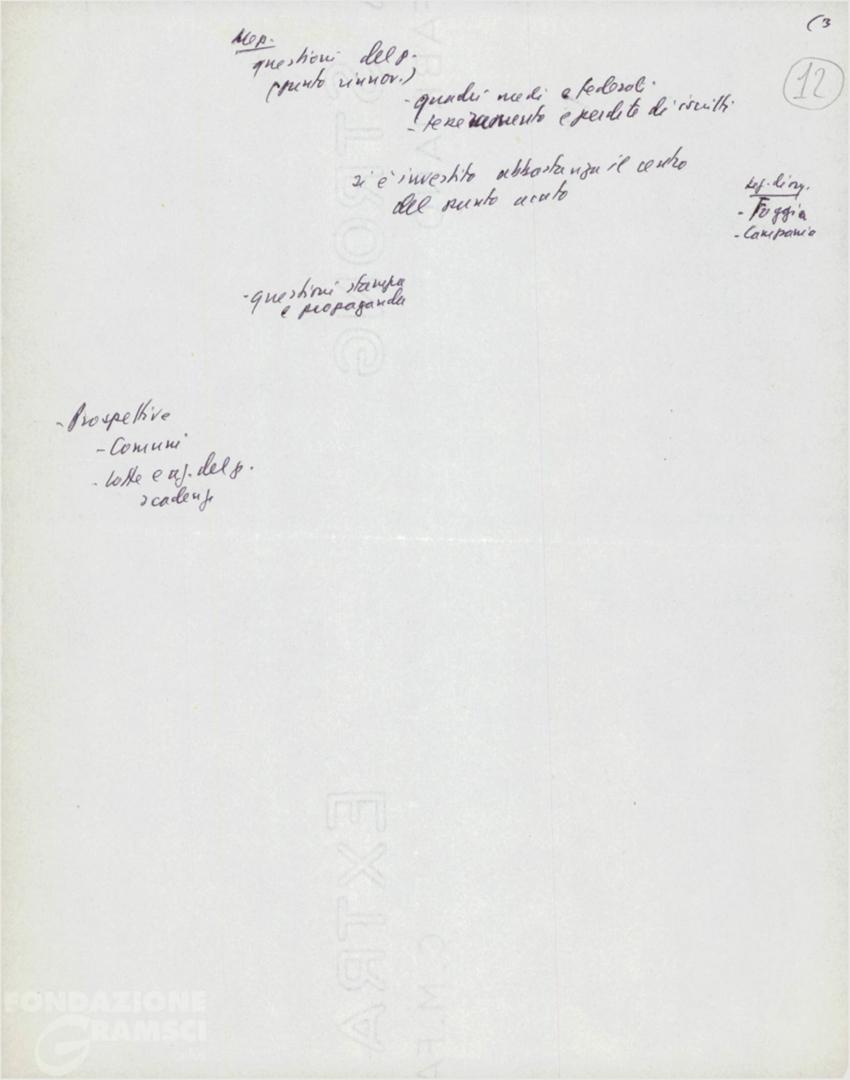 (3
12
questioni del p.
(punto rinnov.)
- quadri medi e federali
- tesseramento e perdite di iscritti
si è investito abbastanza il centro
del punto acuto
- Foggia
- Campania
- questioni stampa
e propaganda
- Prospettive
- Comuni
- lotte e org. del p.
scadenze
EXTRA
FONDAZIONE
GRAMSCI